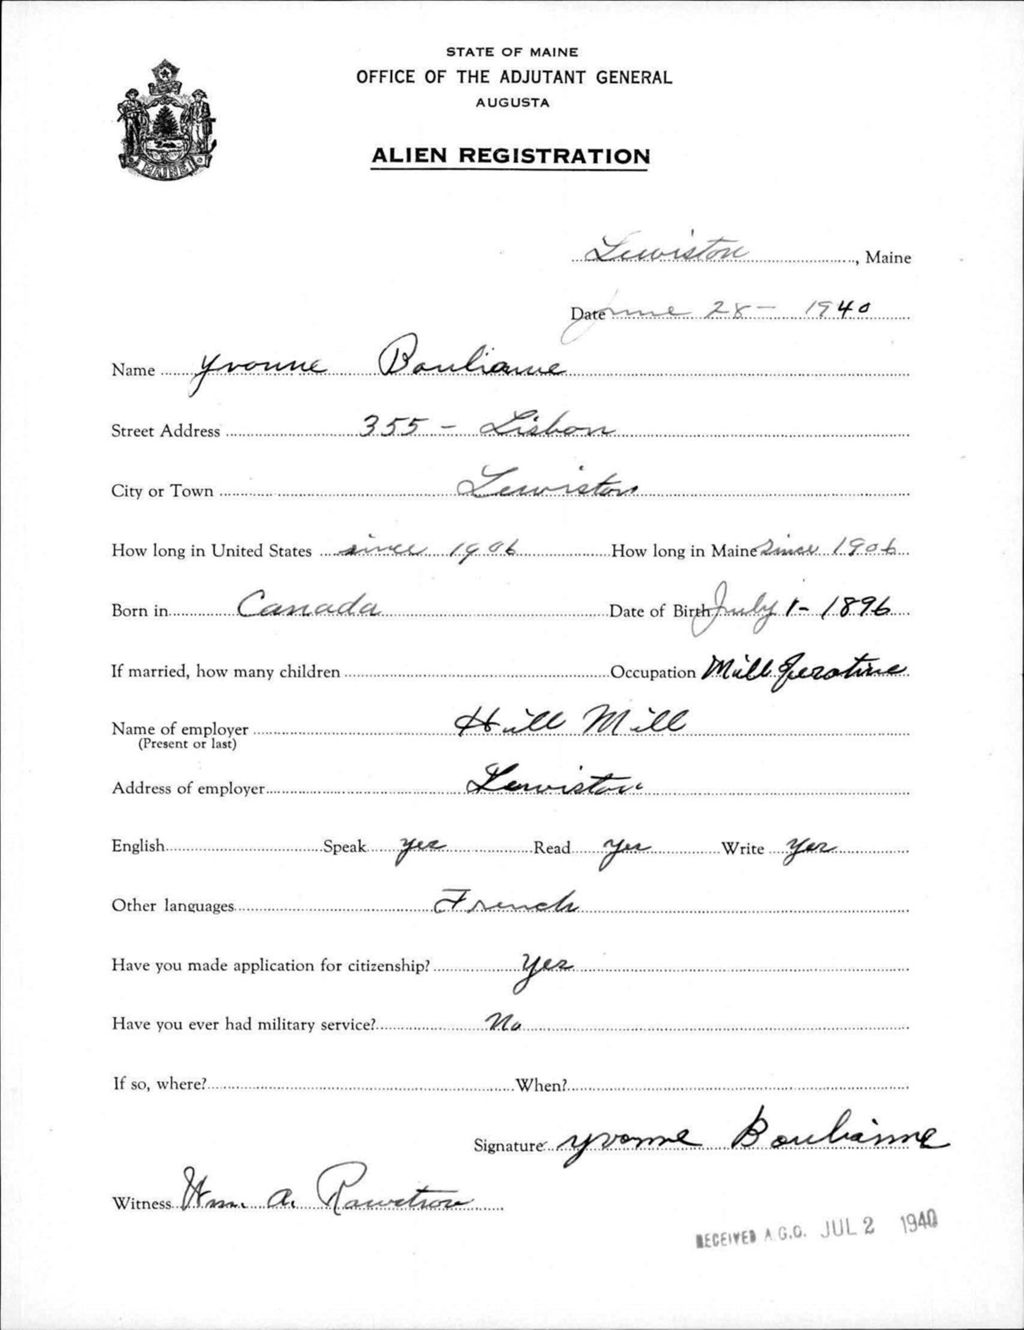 STATE OF MAINE
OFFICE OF THE ADJUTANT GENERAL
AUGUSTA
ALIEN REGISTRATION
MAINE
Lewiston, Maine
Date June 28 - 1940
Name Yvonne Boulianne
Street Address 355 - Lisbon
City or Town Lewiston
How long in United States since 1906 How long in Maine Since 1906
Born in Canada Date of Birth July 1 - 1896
If married, how many children Occupation Mill Operative
Name of employer Hill Mill
(Present or last)
Address of employer Lewiston
English Speak yes Read yes Write yes
Other languages French
Have you made application for citizenship? Yes
Have you ever had military service? No
If so, where? When?
Signature Yvonne Boulianne
Witness Wm. A.
RECEIVED A.G.O. JUL 2 1940